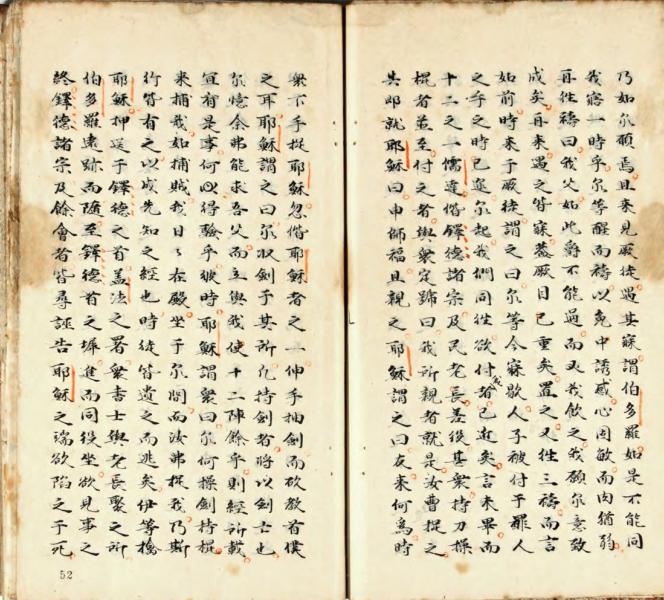 乃如尔願焉且来見厥徒遇其寐謂伯多羅如是不能同
我寤一時乎尔等醒而禱以免中誘感心固敏而肉猶弱
再徃禱曰我父如此爵不能過而又我飲之我願尔意致
成矣再来遇之皆寐葢厥目已重矣置之又徃三禱而言
如前時来于厥徒謂之曰尔等今寐歇人子被付于罪人
之手之時已近尔起我們同徃欲付我者已近矣言未畢而
十二之一儒達偕鐸德諸宗及民老長差役甚衆持刀操
棍者並至付之者與衆定號曰我所親者就是汝曹捉之
其即就耶穌曰申師福且親之耶穌謂之曰友来何為時
衆下手捉耶穌忽偕耶穌者之一伸手抽劍而砍教首僕
之耳耶穌謂之曰尔收劍于其所凢持劍者將以劍亡也
尔憶余弗能求吾父而立與我使十二陣餘乎則經所載
宜有是事何以得驗乎彼時耶穌謂衆曰尔何操劍持棍
来捕我如捕賊我日日在殿坐于尔間而汝弗捉我乃斯
行皆有之以成先知之經也時徒皆遺之而逃矣伊等擒
耶穌押送于鐸德之首盖法之署衆書士與老長聚之所
伯多羅遠跡而随至鐸德首之墀進而同役坐欲見事之
終鐸德諸宗及餘會者皆尋誣告耶穌之端欲陷之于死
52